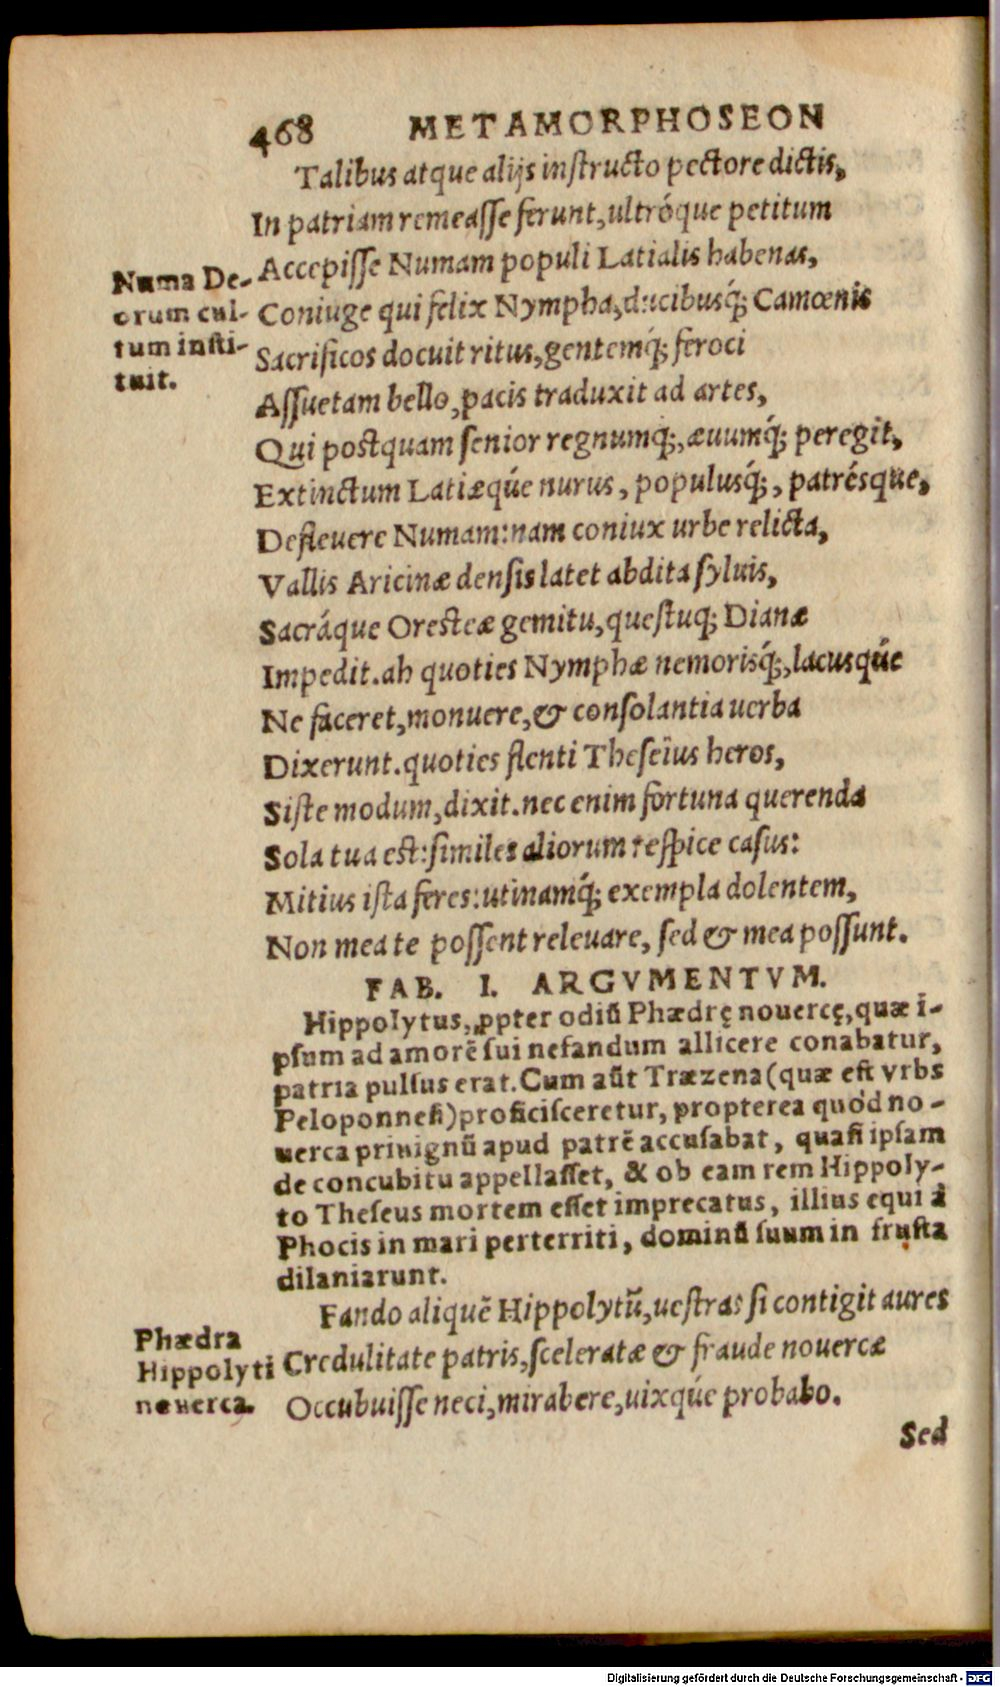 468 METAMORPHOSEON
Talibus atque alijs instructo pectore dictis,
In patriam remeasse ferunt, ultróque petitum
Accepisse Numam populi Latialis habenas,
Numa De-
orum cul-
tum insti-
tuit.
Coniuge qui felix Nympha, ducibusq́; Camœnis
Sacrificos docuit ritus, gentemq́; feroci
Assuetam bello, pacis traduxit ad artes,
Qui postquam senior regnumq́;, æuumq́; peregit,
Extinctum Latiæqúe nurus, populusq́;, patrésque,
Defleuere Numam: nam coniux urbe relicta,
Vallis Aricinæ densis latet abdita syluis,
Sacráque Oresteæ gemitu, questuq; Dianæ
Impedit. ah quoties Nymphæ nemorisq́;, lacusqúe
Ne faceret, monuere, & consolantia uerba
Dixerunt. quoties flenti Theseïus heros,
Siste modum, dixit. nec enim fortuna querenda
Sola tua est: similes aliorum respice casus:
Mitius ista feres: utinamq́; exempla dolentem,
Non mea te possent releuare, sed & mea possunt.
FAB. I. ARGVMENTVM.
Hippolytus, ꝓpter odiũ Phædrę nouercę, quæ i-
psum ad amorẽ sui nefandum allicere conabatur,
patria pulsus erat. Cum aũt Træzena (quæ est vrbs
Peloponnesi) proficisceretur, propterea quòd no-
uerca priuignũ apud patrẽ accusabat, quasi ipsam
de concubitu appellasset, & ob eam rem Hippoly-
to Theseus mortem esset imprecatus, illius equi à
Phocis in mari perterriti, dominũ suum in frusta
dilaniarunt.
Fando aliquẽ Hippolytũ, uestras si contigit aures
Phædra
Hippolyti
nouerca.
Credulitate patris, sceleratæ & fraude nouercæ
Occubuisse neci, mirabere, uixqúe probabo.
Sed
Digitalisierung gefördert durch die Deutsche Forschungsgemeinschaft - DFG